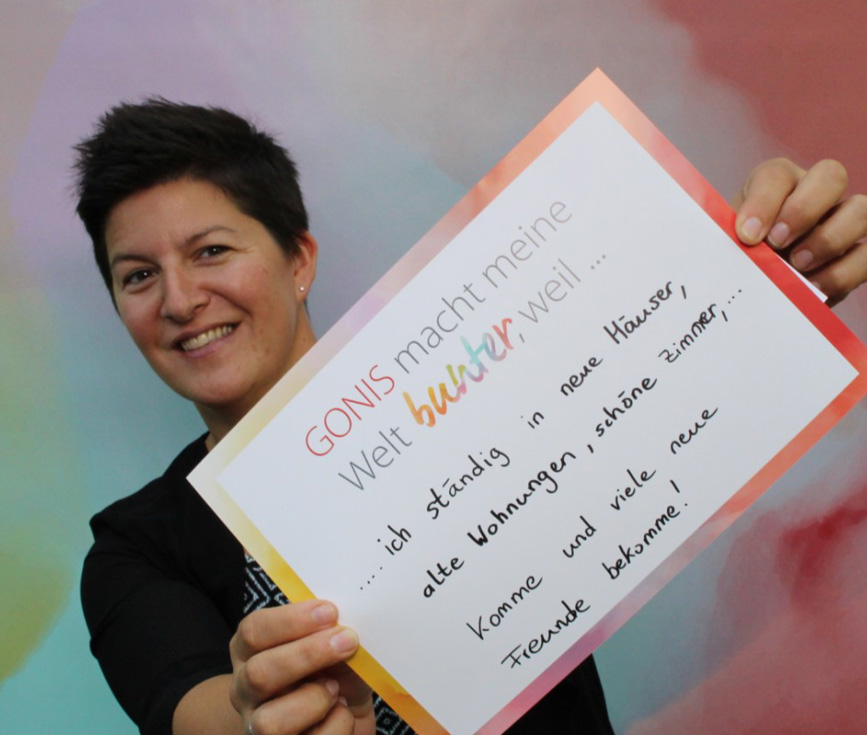 GONIS macht meine
Welt bunter, weil ...
..... ich ständig in neue Häuser,
alte Wohnungen, schöne Zimmer,...
komme und viele neue
Freunde bekomme!